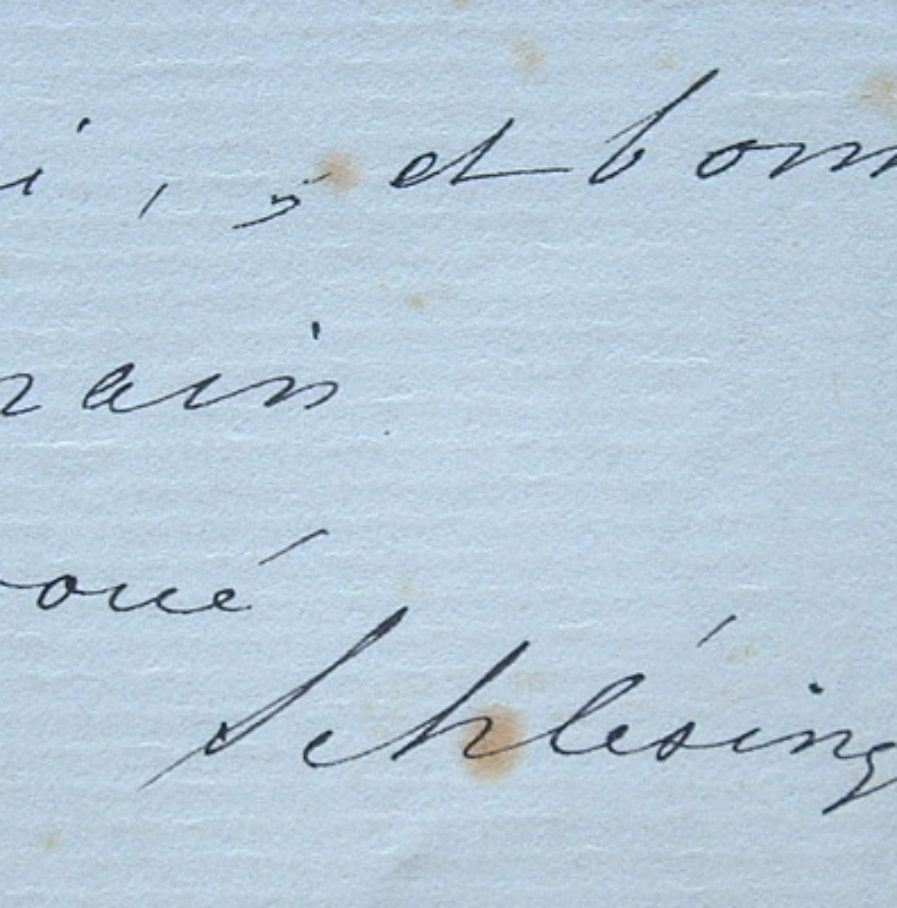 i, et bonn
rain
voué
Schlésing